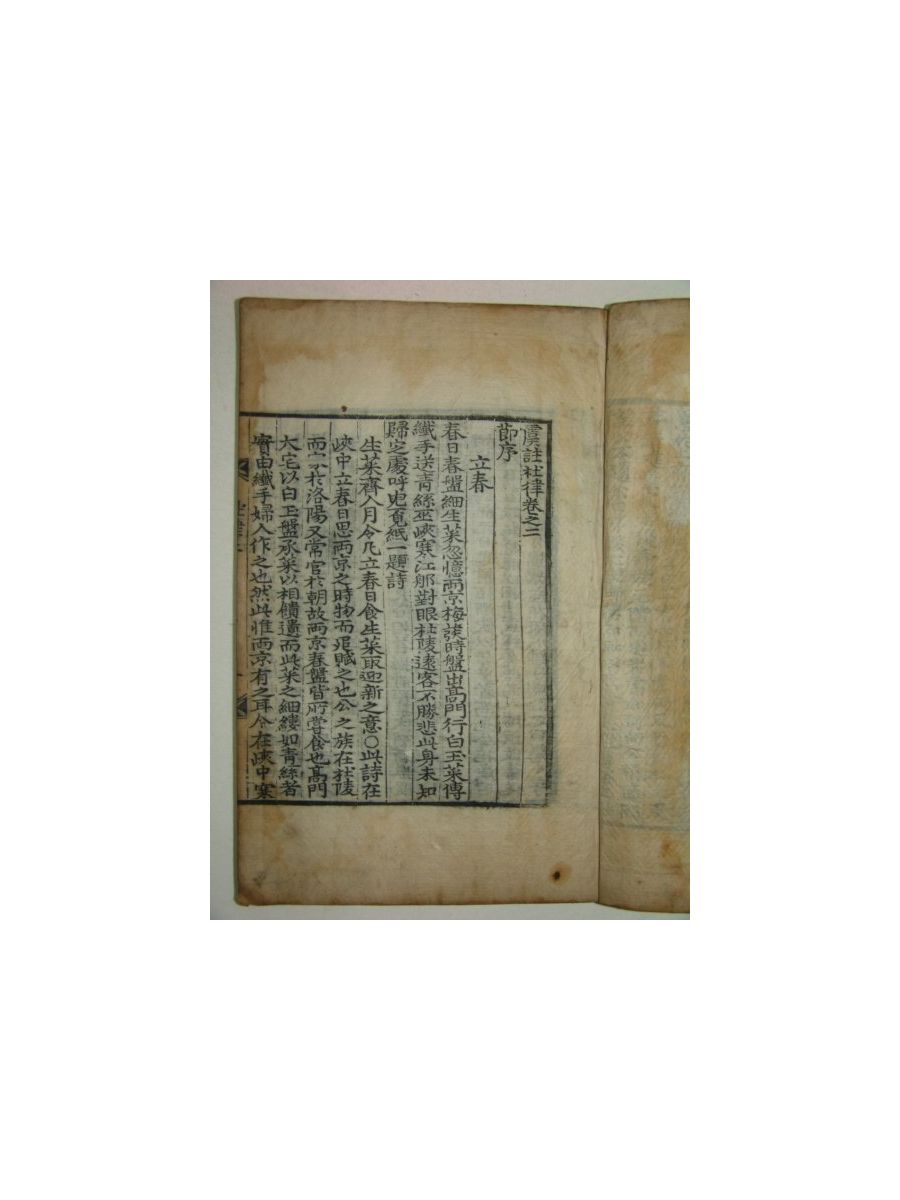 虞註杜律卷之二
節序
立春
春日春盤細生菜忽憶兩京梅發時盤出高門行白玉菜傳
纖手送青絲巫峽寒江那對眼杜陵遠客不勝悲此身未知
歸定處呼兒覓紙一題詩
生菜齊人月令凡立春日食生菜取迎新之意〇此詩在
峽中立春日思兩京之時物而追賦之也公之族在杜陵
而家於洛陽又常官於朝故兩京春盤皆所嘗食也高門
大宅以白玉盤承菜以相饋遺而此菜之細縷如青絲者
實由纖手婦人作之也然此惟兩京有之耳今在峽中寒